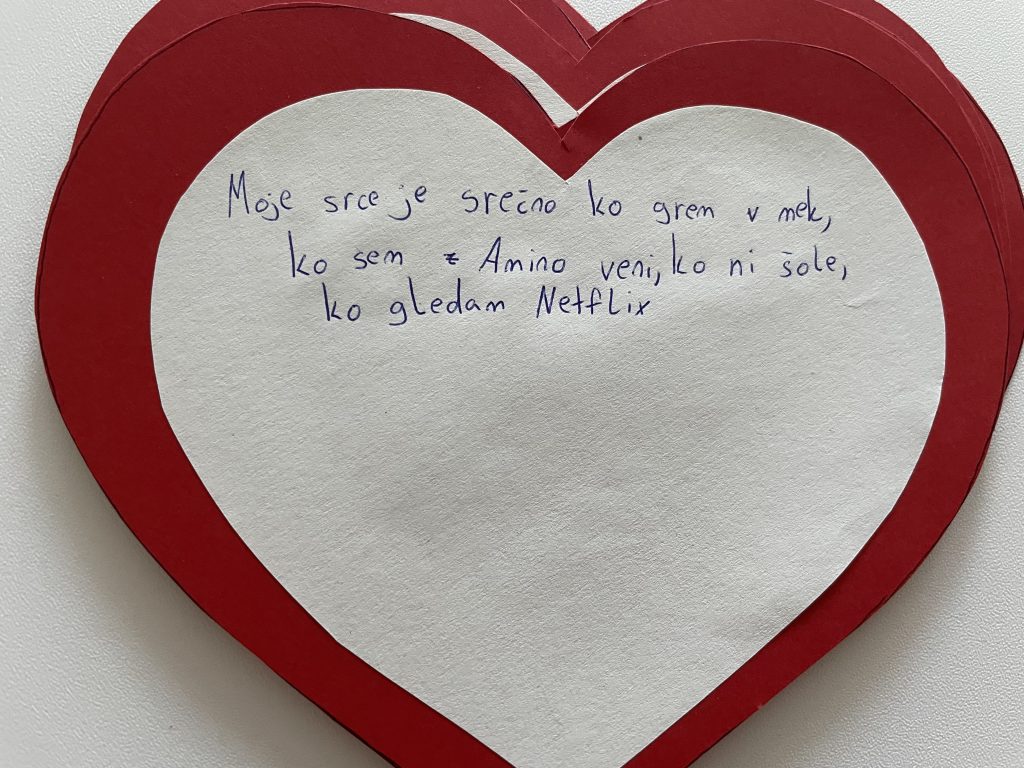 Moje srce je srečno ko grem v mek,
ko sem z Amino veni, ko ni šole,
ko gledam Netflix